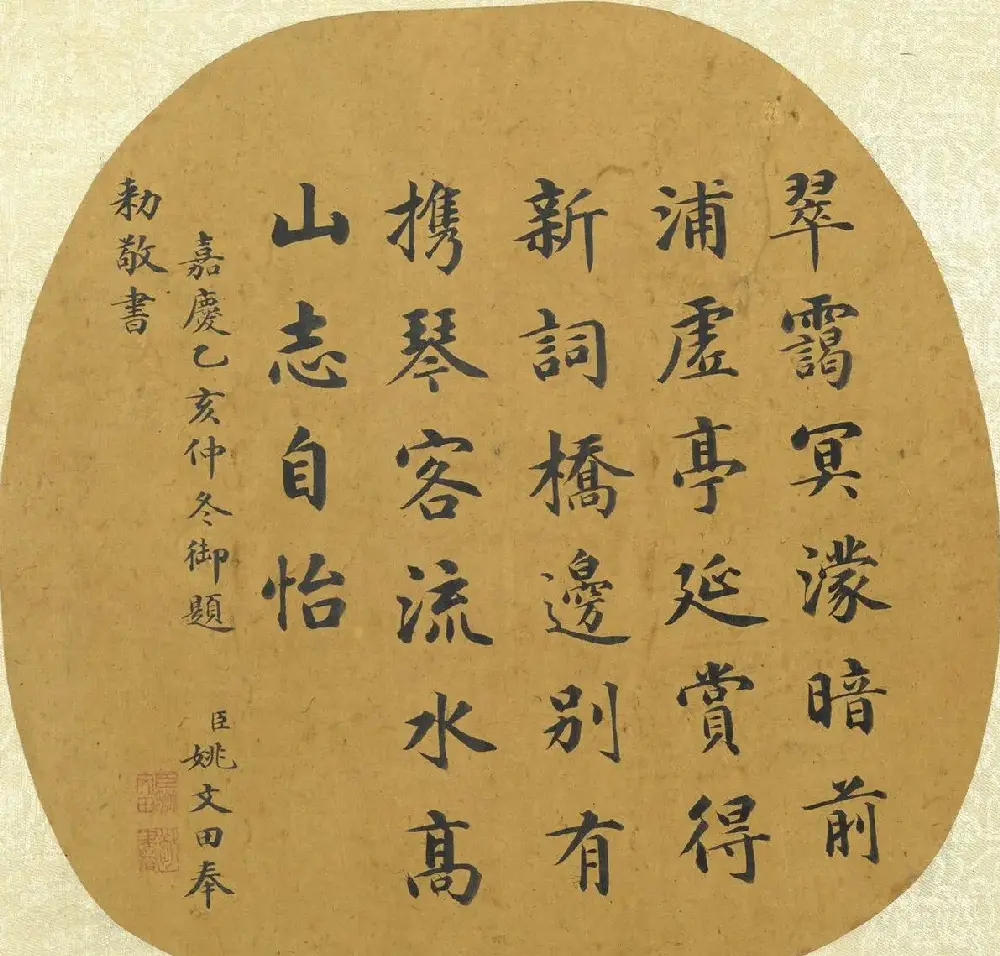 翠靄冥濛暗前
浦虛亭延賞得
新詞橋邊別有
携琴客流水高
山志自怡
嘉慶乙亥仲冬御題
臣姚文田奉
勅敬書